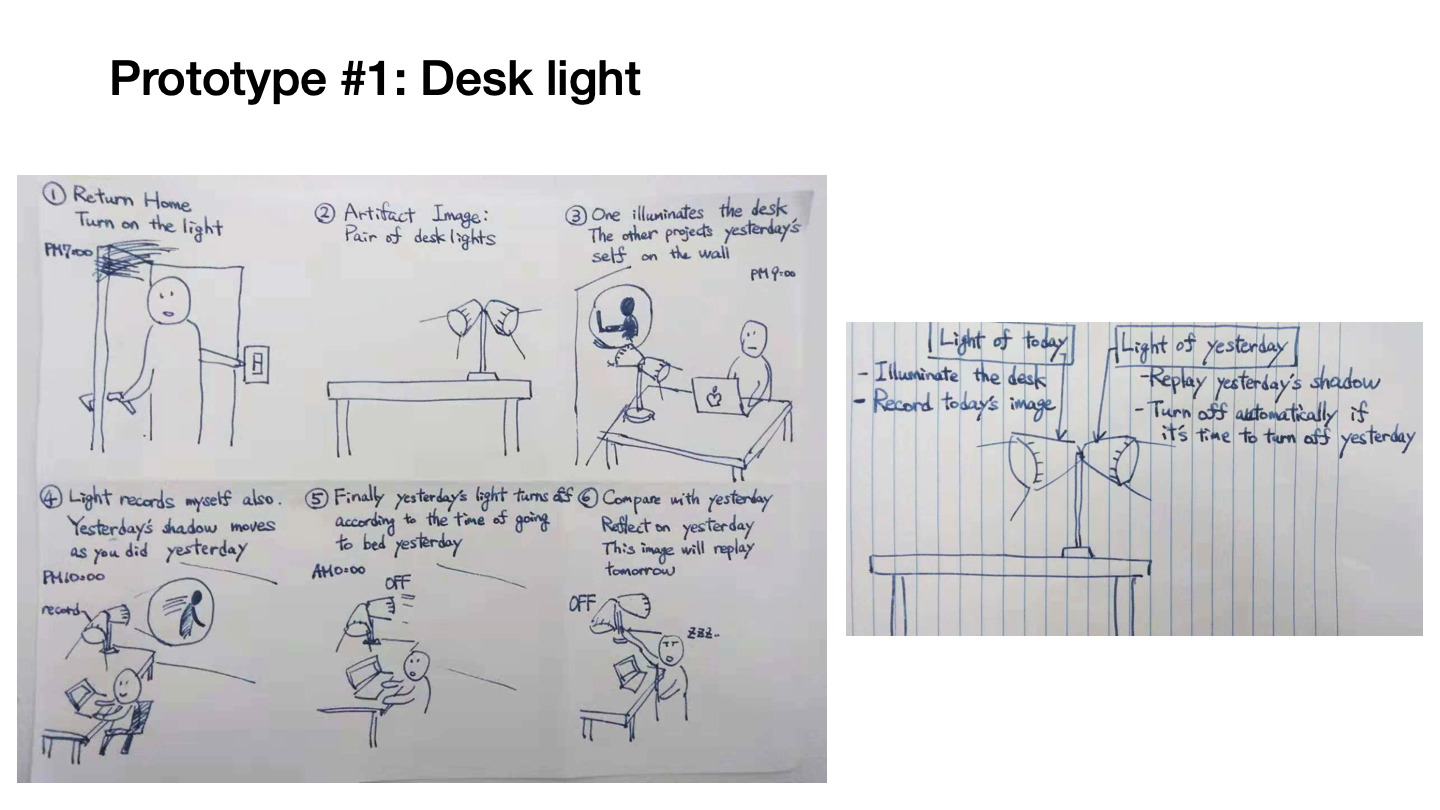 Prototype #1: Desk light
① Return Home
Turn on the light
PM7:00
② Artifact Image:
Pair of desk lights
③ One illuminates the desk
The other projects yesterday's
self on the wall
PM9:00
④ Light records myself also.
Yesterday's shadow moves
as you did yesterday
PM10:00
record
⑤ Finally yesterday's light turns off
according to the time of going
to bed yesterday
AM0:00
OFF
⑥ Compare with yesterday
Reflect on yesterday
This image will replay
tomorrow
OFF
zzz..
Light of today
- Illuminate the desk
- Record today's image
Light of yesterday
- Replay yesterday's shadow
- Turn off automatically if
it's time to turn off yesterday